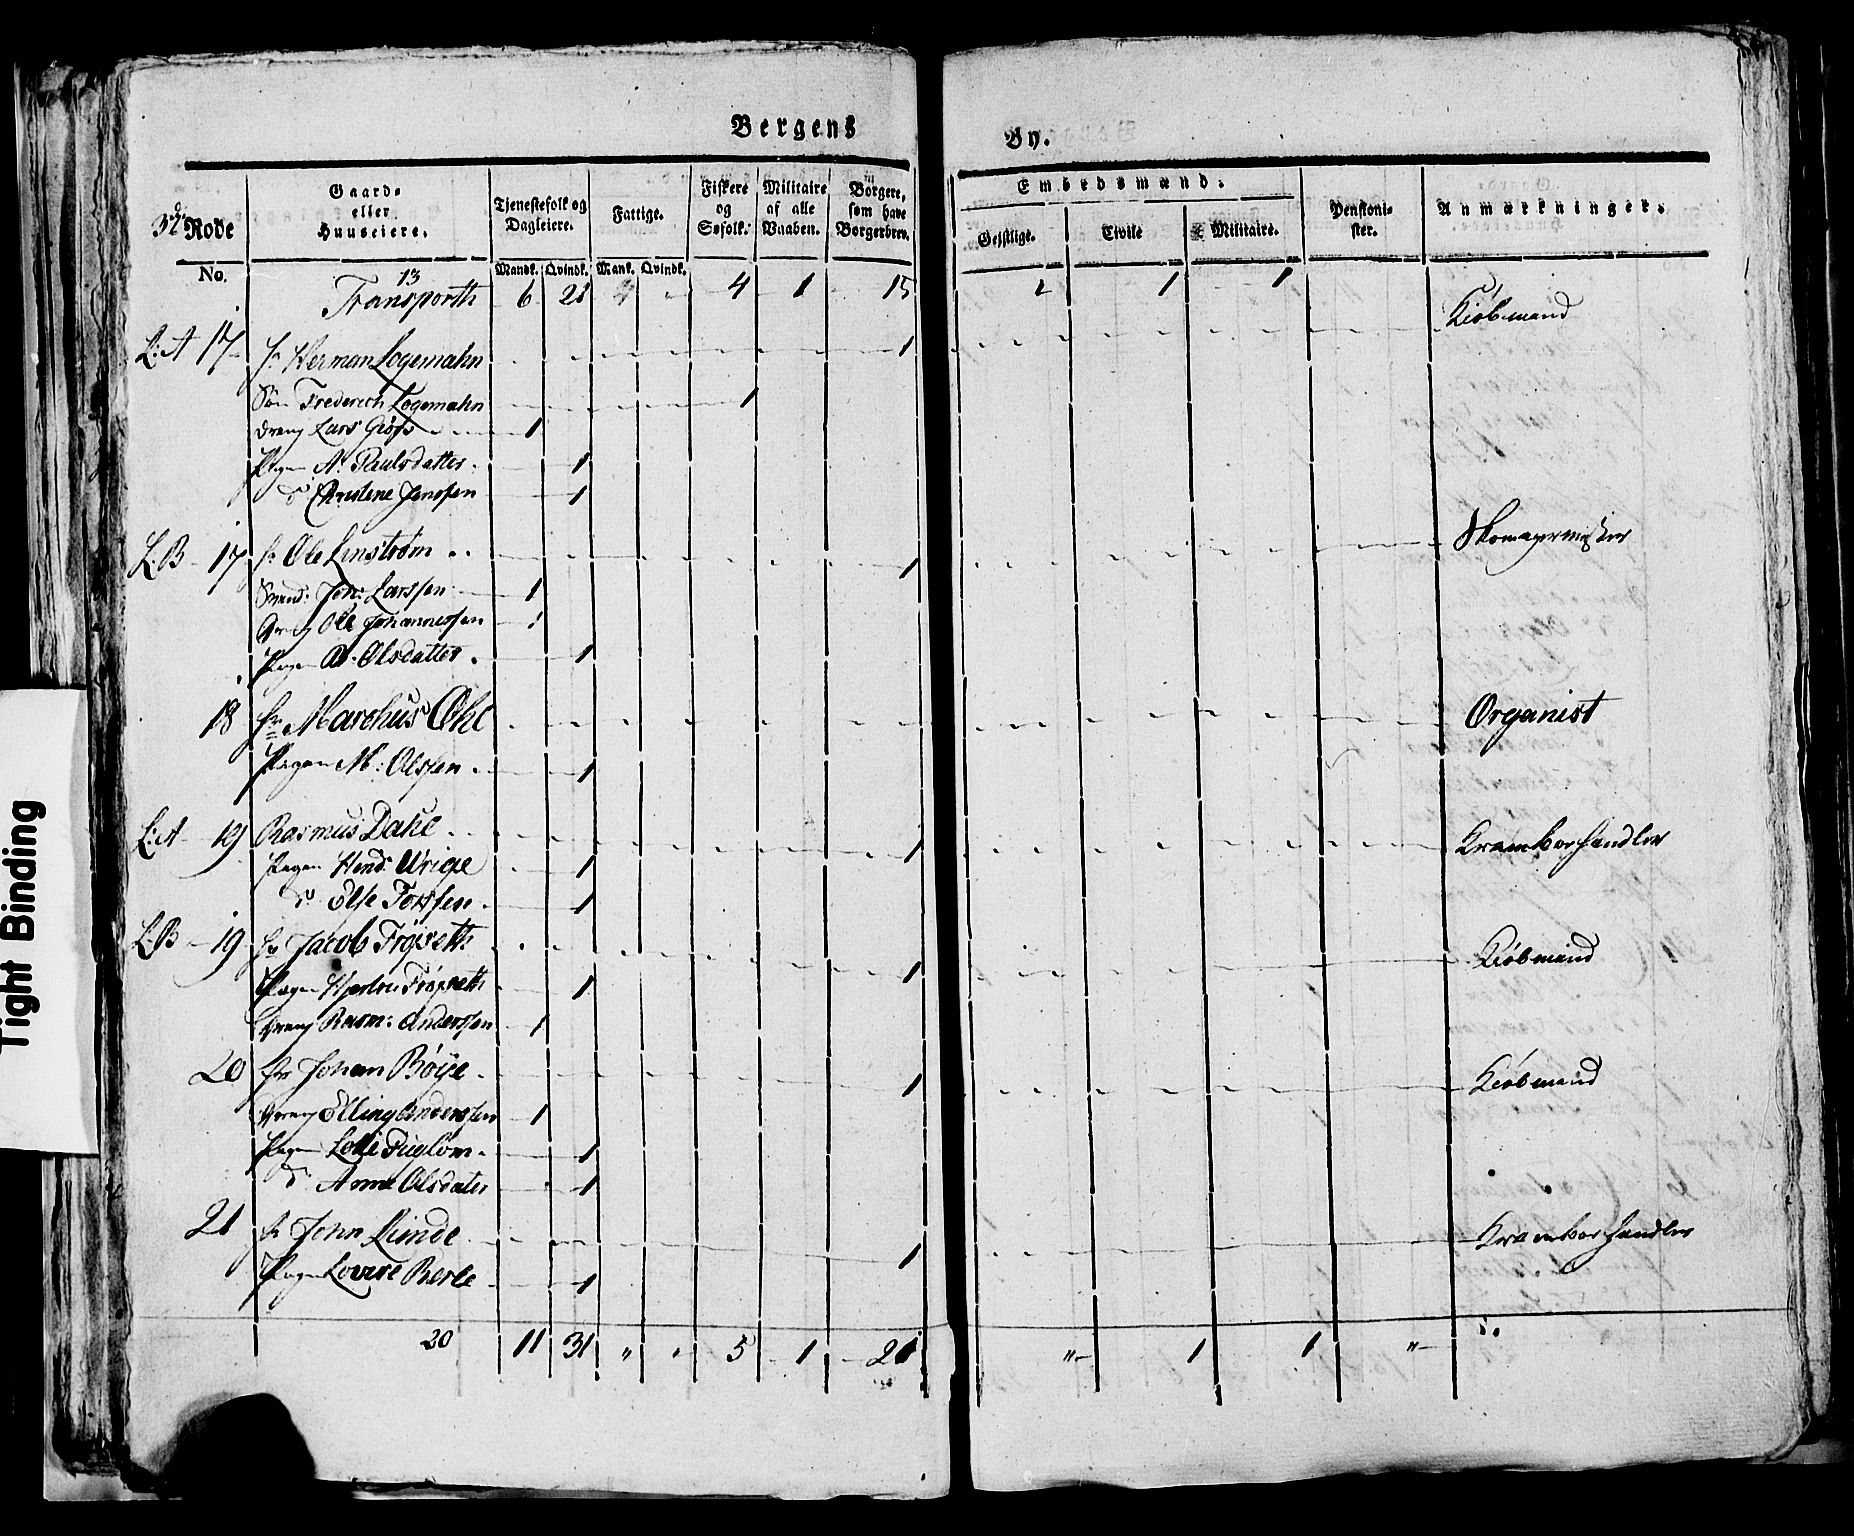 Bergens By.
3de Rode
Gaard- eller Huuseiere.
Tjenestefolk og Dagleiere.
Fattige.
Fiskere og Søfolk.
Militaire af alle Vaaben.
Borgere, som have Borgerbrev.
Embedsmænd.
Geistlige. Civile Militaire.
Pensionister.
Anmærkninger.
No. Mandk. Qvindk. Mank. Qvindk.
13
Transporth 6 21 4 1 15 1 1
L: A 17 Hr Herman Logemahn 1 Kiøbmand
Søn Frederich Logemahn 1
Dreng Lars 1
Pigen A: Paulsdatter 1
do Christene Janssen 1
L: B 17 Hr Ole Linstrøm 1 Skomagermester
Svend: Joh: Larssen 1
Dreng Ole Johannessen 1
Pigen A: Olsdatter 1
18 Hr Marchus Ohl Organist
Pigen M: Olssen 1
L: A 19 Rasmus Dahl 1 Kramboehandler
Pigen Hend: Wrige 1
do Else Torssen 1
L: B 19 Hr Jacob Frøseth 1 Kiøbmand
Pigen Frøseth 1
Dreng Rasm: Anderssen 1
20 Hr Johan Bøye 1 Kiøbmand
Dreng Elling Anderssen 1
Pigen Fuglöm 1
do Anne Olsdater 1
21 Hr John Lunde 1 Kramboehandler
Pigen Lovise Berle 1
20 11 31 " " 5 1 21 " 1 1 "
Tight Binding